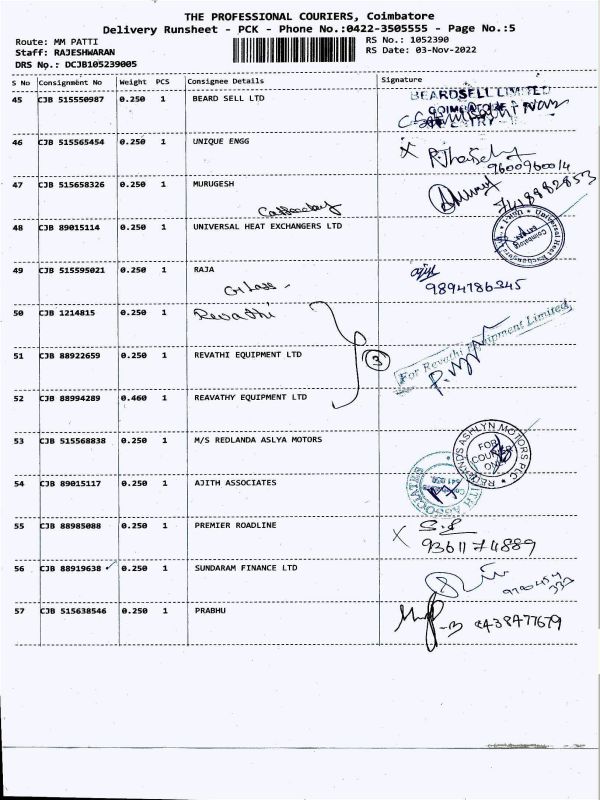 THE PROFESSIONAL COURIERS, Coimbatore
Delivery Runsheet - PCK - Phone No.:0422-3505555 - Page No.:5
Route: MM PATTI
RS No.: 1052390
Staff: RAJESHWARAN
RS Date: 03-Nov-2022
DRS No.: DCJB105239005
S No Consignment No Weight PCS Consignee Details Signature
45 CJB 515550987 0.250 1 BEARD SELL LTD
BEARDSELL LIMITED
46 CJB 515565454 0.250 1 UNIQUE ENGG
X 9600960014
47 CJB 515658326 0.250 1 MURUGESH
7418882853
48 CJB 89015114 0.250 1 UNIVERSAL HEAT EXCHANGERS LTD
Universal Heat Exchangers Coimbatore
49 CJB 515595021 0.250 1 RAJA
9894786345
50 CJB 1214815 0.250 1 Revathi
51 CJB 88922659 0.250 1 REVATHI EQUIPMENT LTD
3
For Revathi Equipment Limited
52 CJB 88994289 0.460 1 REAVATHY EQUIPMENT LTD
53 CJB 515568838 0.250 1 M/S REDLANDA ASLYA MOTORS
REDLANDS ASHLYN MOTORS PLC
FOR COURIER ONLY
54 CJB 89015117 0.250 1 AJITH ASSOCIATES
AJITH ASSOCIATES
55 CJB 88985088 0.250 1 PREMIER ROADLINE
X
9361174889
56 CJB 88919638 0.250 1 SUNDARAM FINANCE LTD
57 CJB 515638546 0.250 1 PRABHU